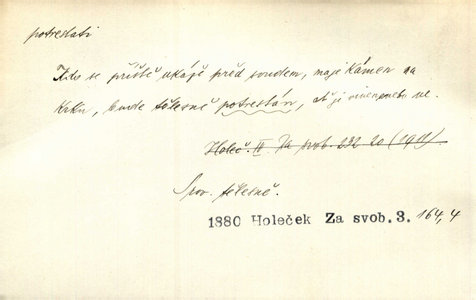 potrestati
Kdo se příště ukáže před soudem, maje kámen na
krku, bude tělesně potrestán, ať je vinen nebo ne.
Holeč. IV. Za svob. 232 20 (1911)
Srov. tělesně.
1880 Holeček Za svob. 3. 164,4